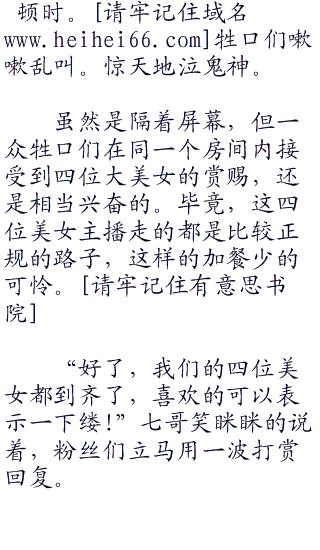 顿时。[请牢记住域名
www.heihei66.com]牲口们嗷
嗷乱叫。惊天地泣鬼神。
虽然是隔着屏幕，但一
众牲口们在同一个房间内接
受到四位大美女的赏赐，还
是相当兴奋的。毕竟，这四
位美女主播走的都是比较正
规的路子，这样的加餐少的
可怜。[请牢记住有意思书
院]
“好了，我们的四位美
女都到齐了，喜欢的可以表
示一下缕!”七哥笑眯眯的说
着，粉丝们立马用一波打赏
回复。